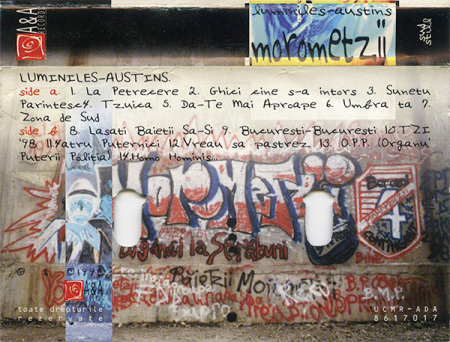 A&A
RECORDS
luminiles-austins
morometzii
sud
stil
LUMINILES-AUSTINS.
side a. 1. La Petrecere 2. Ghici cine s-a intors 3. Sunetu
Parintesc4. Tzuica 5. Da-Te Mai Aproape 6. Umbra ta 7.
Zona de Sud
side b 8. Lasati Baietii Sa-Si 9. Bucuresti-Bucuresti 10.TZI
'98 11.Patru Puternici 12.Vreau sa pastrez 13. O.P.P. (Organu'
Puterii Politia) 14.Homo Hominis..
MOROMETZII
la
Băieţii
A&A
toate drepturile
rezervate
UCMR-ADA
8617017